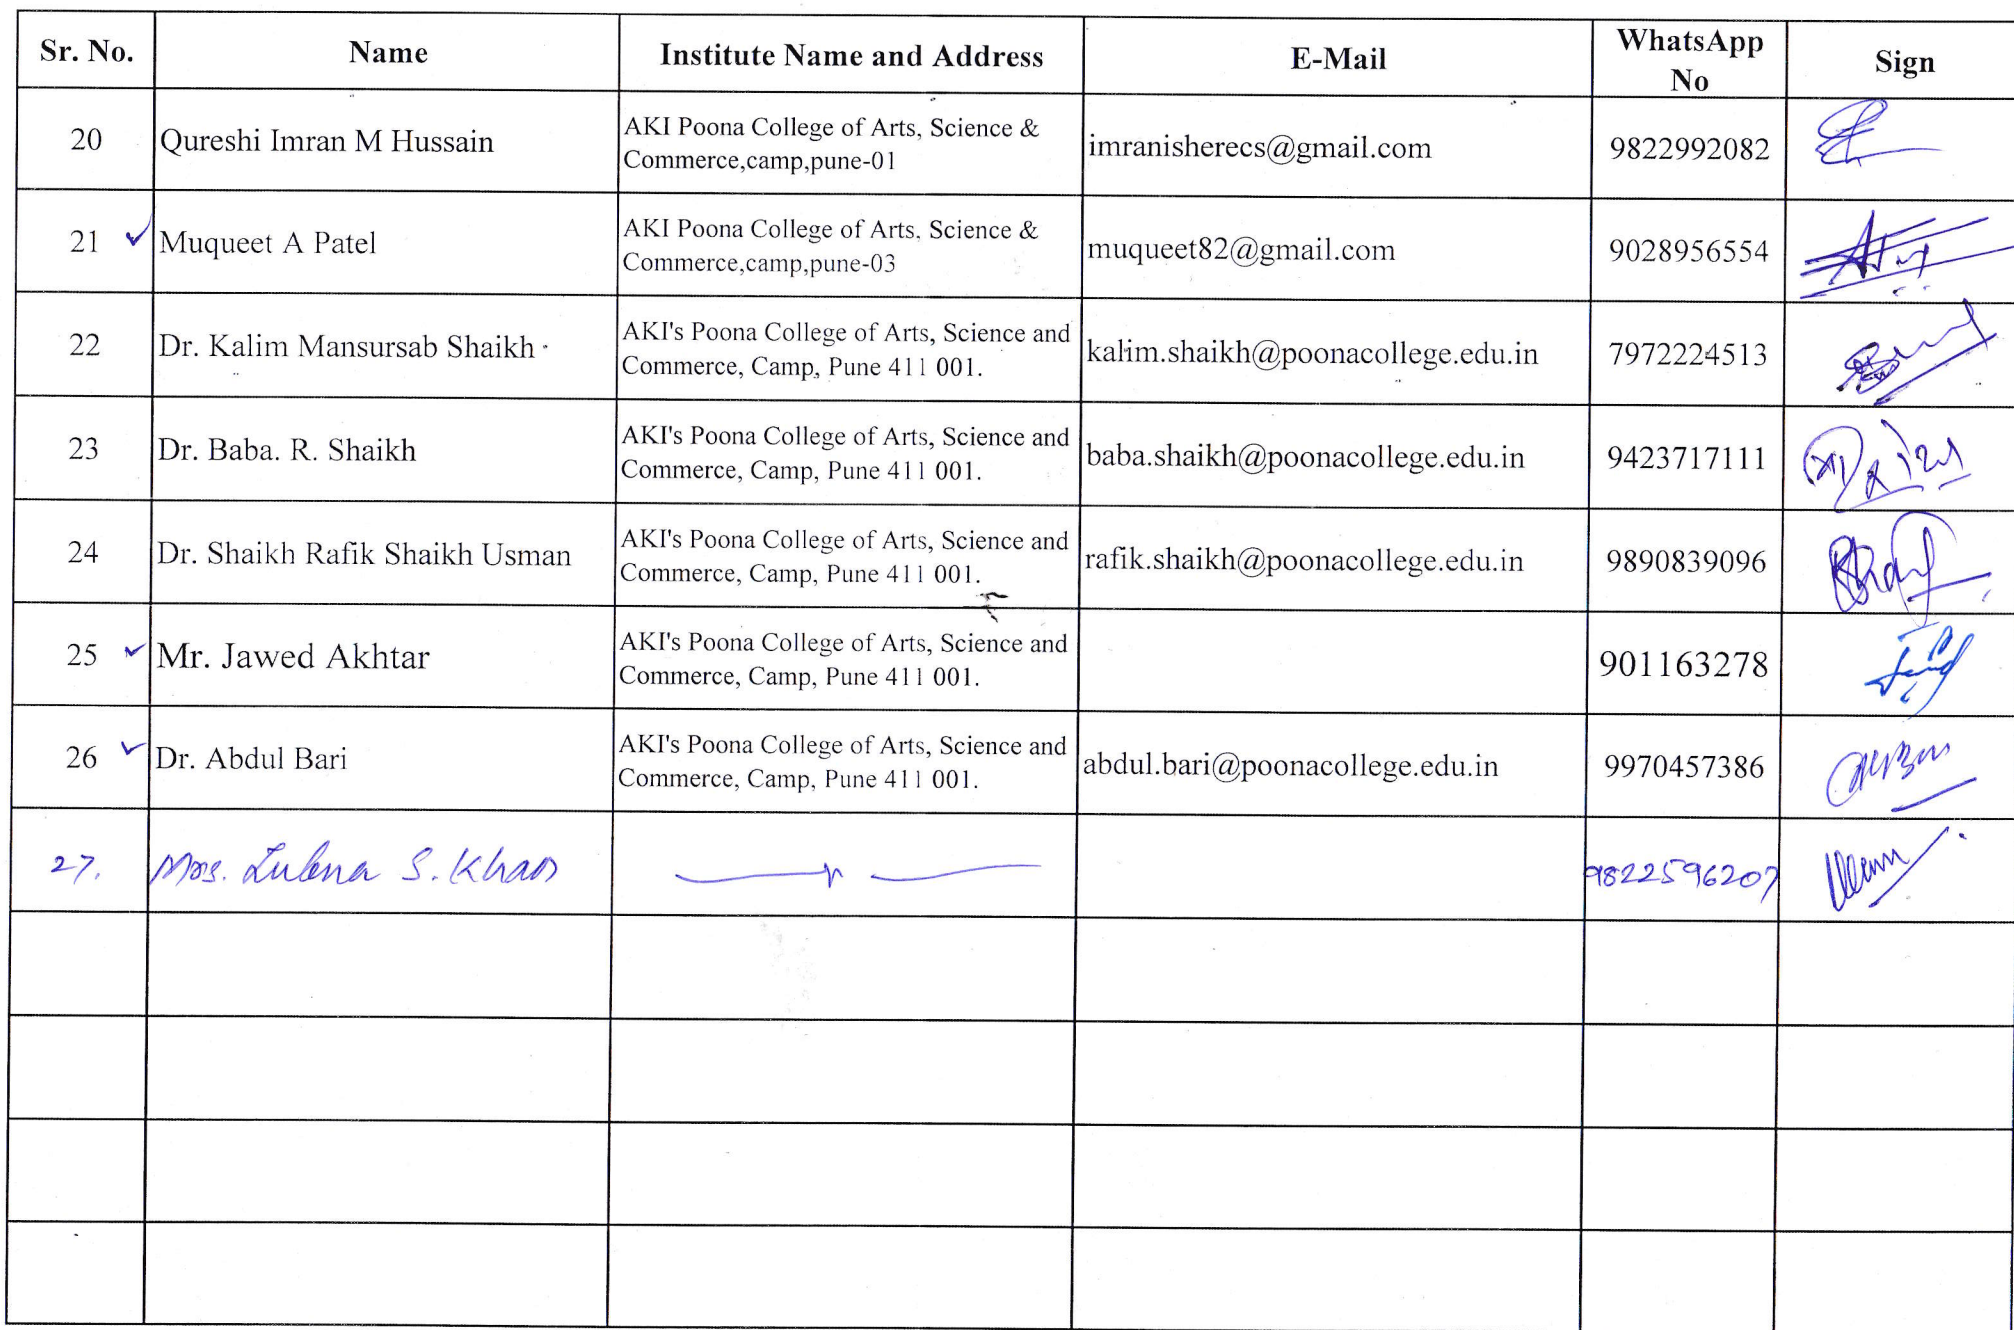 Sr. No. Name Institute Name and Address E-Mail WhatsApp No Sign
20 Qureshi Imran M Hussain AKI Poona College of Arts, Science & Commerce,camp,pune-01 imranisherecs@gmail.com 9822992082
21 Muqueet A Patel AKI Poona College of Arts, Science & Commerce,camp,pune-03 muqueet82@gmail.com 9028956554
22 Dr. Kalim Mansursab Shaikh AKI's Poona College of Arts, Science and Commerce, Camp, Pune 411 001. kalim.shaikh@poonacollege.edu.in 7972224513
23 Dr. Baba. R. Shaikh AKI's Poona College of Arts, Science and Commerce, Camp, Pune 411 001. baba.shaikh@poonacollege.edu.in 9423717111
24 Dr. Shaikh Rafik Shaikh Usman AKI's Poona College of Arts, Science and Commerce, Camp, Pune 411 001. rafik.shaikh@poonacollege.edu.in 9890839096
25 Mr. Jawed Akhtar AKI's Poona College of Arts, Science and Commerce, Camp, Pune 411 001. 901163278
26 Dr. Abdul Bari AKI's Poona College of Arts, Science and Commerce, Camp, Pune 411 001. abdul.bari@poonacollege.edu.in 9970457386
27. Mrs. Lubna S. Khan 9822596207